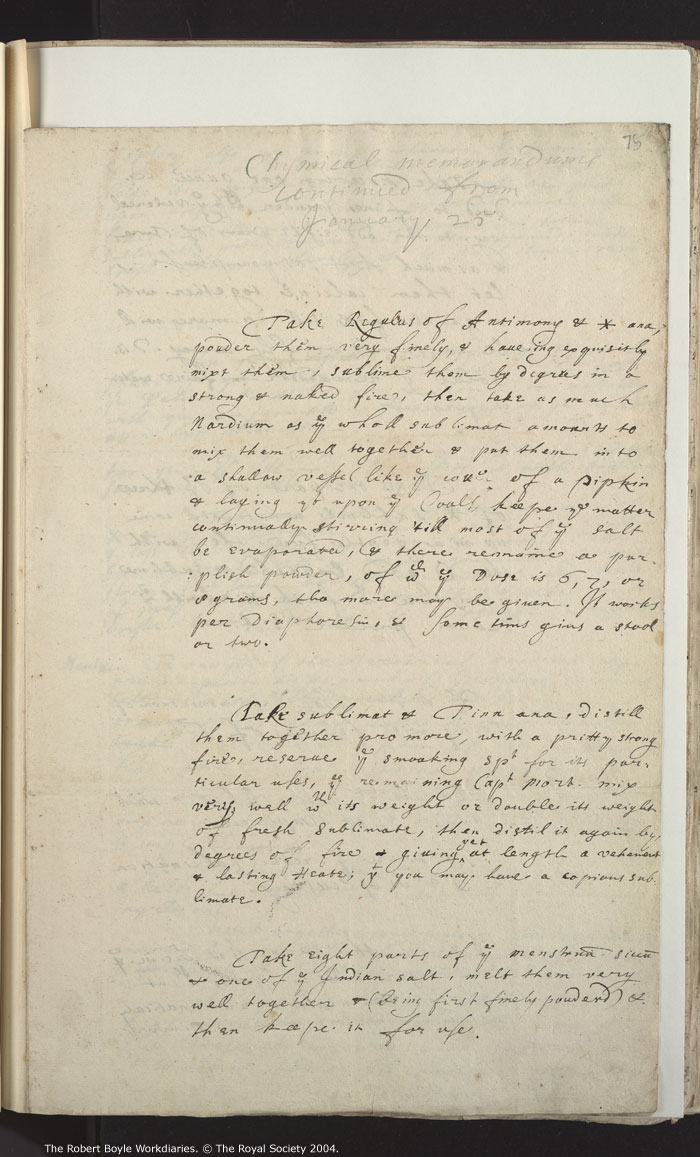 75
Chymical memorandums
continued from
January 25th
Take Regulus of Antimony & * ana,
pouder them very finely, & haveing exquisitly
mixt them, sublime them by degrees in a
strong & naked fire, then take as much
Nardium as ye whole sublimat amounts to
mix them well together & put them into
a shallow vessel like ye cover of a pipkin
& laying yt upon ye Coals, keepe ye matter
continually stirring till most of ye salt
be evaporated, & there remaine a pur-
:plish powder, of wch ye Dose is 6, 7, or
8 grains, tho more may be given. It works
per Diaphoresin, & some tims givs a stool
or two.
Take sublimat & Tinn ana, distill
them together pro more, with a pritty strong
fire, reserve ye smoaking spt for its par-
ticular uses, ye remaining Capt Mort. mix
very well wth its weight or double its weight
of fresh sublimate, then distil it again by
degrees of fire & giving yet at length a vehement
& lasting Heate; yt you may have a copious sub-
limate.
Take eight parts of ye menstruū siccū
& one of ye Indian salt, melt them very
well together & (being first finely pouderd) &
then keepe it for use.
The Robert Boyle Workdiaries. © The Royal Society 2004.